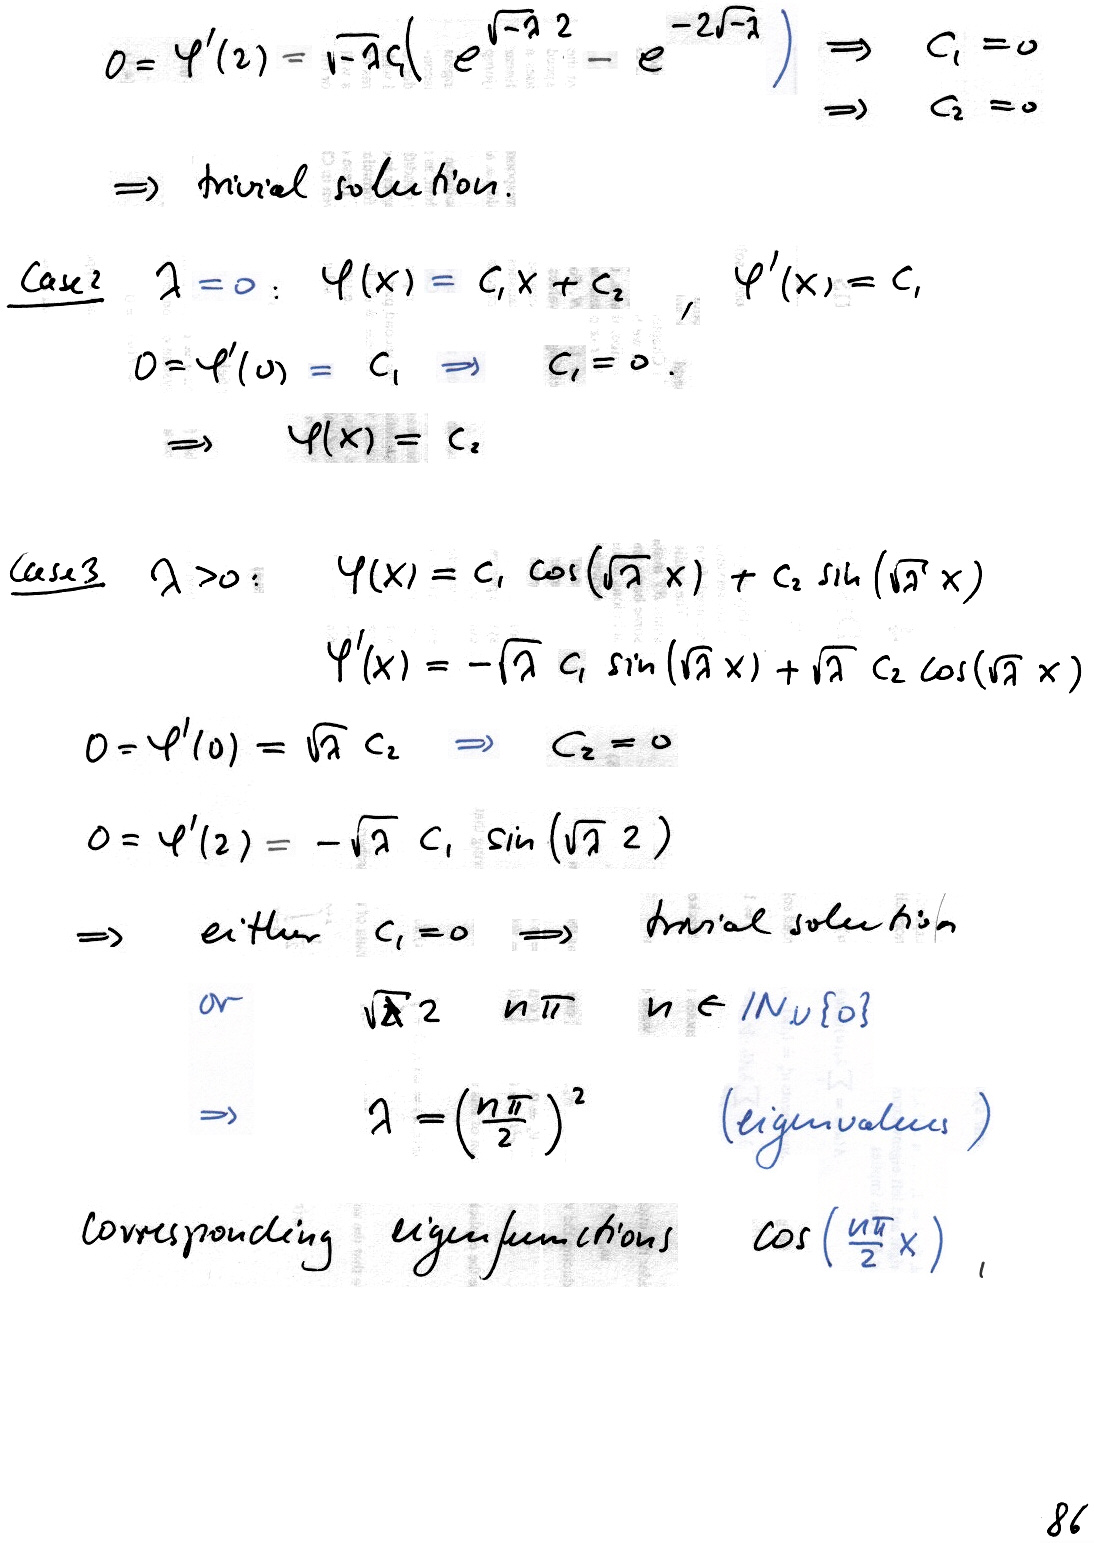 0 = φ'(2) = √-λ C₁( e^{√-λ 2} - e^{-2√-λ} ) ⇒ C₁ = 0
⇒ C₂ = 0
⇒ trivial solution.
Case 2 λ = 0 : φ(x) = C₁ x + C₂ , φ'(x) = C₁
0 = φ'(0) = C₁ ⇒ C₁ = 0 .
⇒ φ(x) = C₂
Case 3 λ > 0 : φ(x) = C₁ cos(√λ x) + C₂ sin(√λ x)
φ'(x) = -√λ C₁ sin(√λ x) + √λ C₂ cos(√λ x)
0 = φ'(0) = √λ C₂ ⇒ C₂ = 0
0 = φ'(2) = -√λ C₁ sin(√λ 2)
⇒ either C₁ = 0 ⇒ trivial solution
or √λ 2 nπ n ∈ ℕ ∪ {0}
⇒ λ = (nπ/2)² (eigenvalues)
Corresponding eigenfunctions cos(nπ/2 x) ,
86